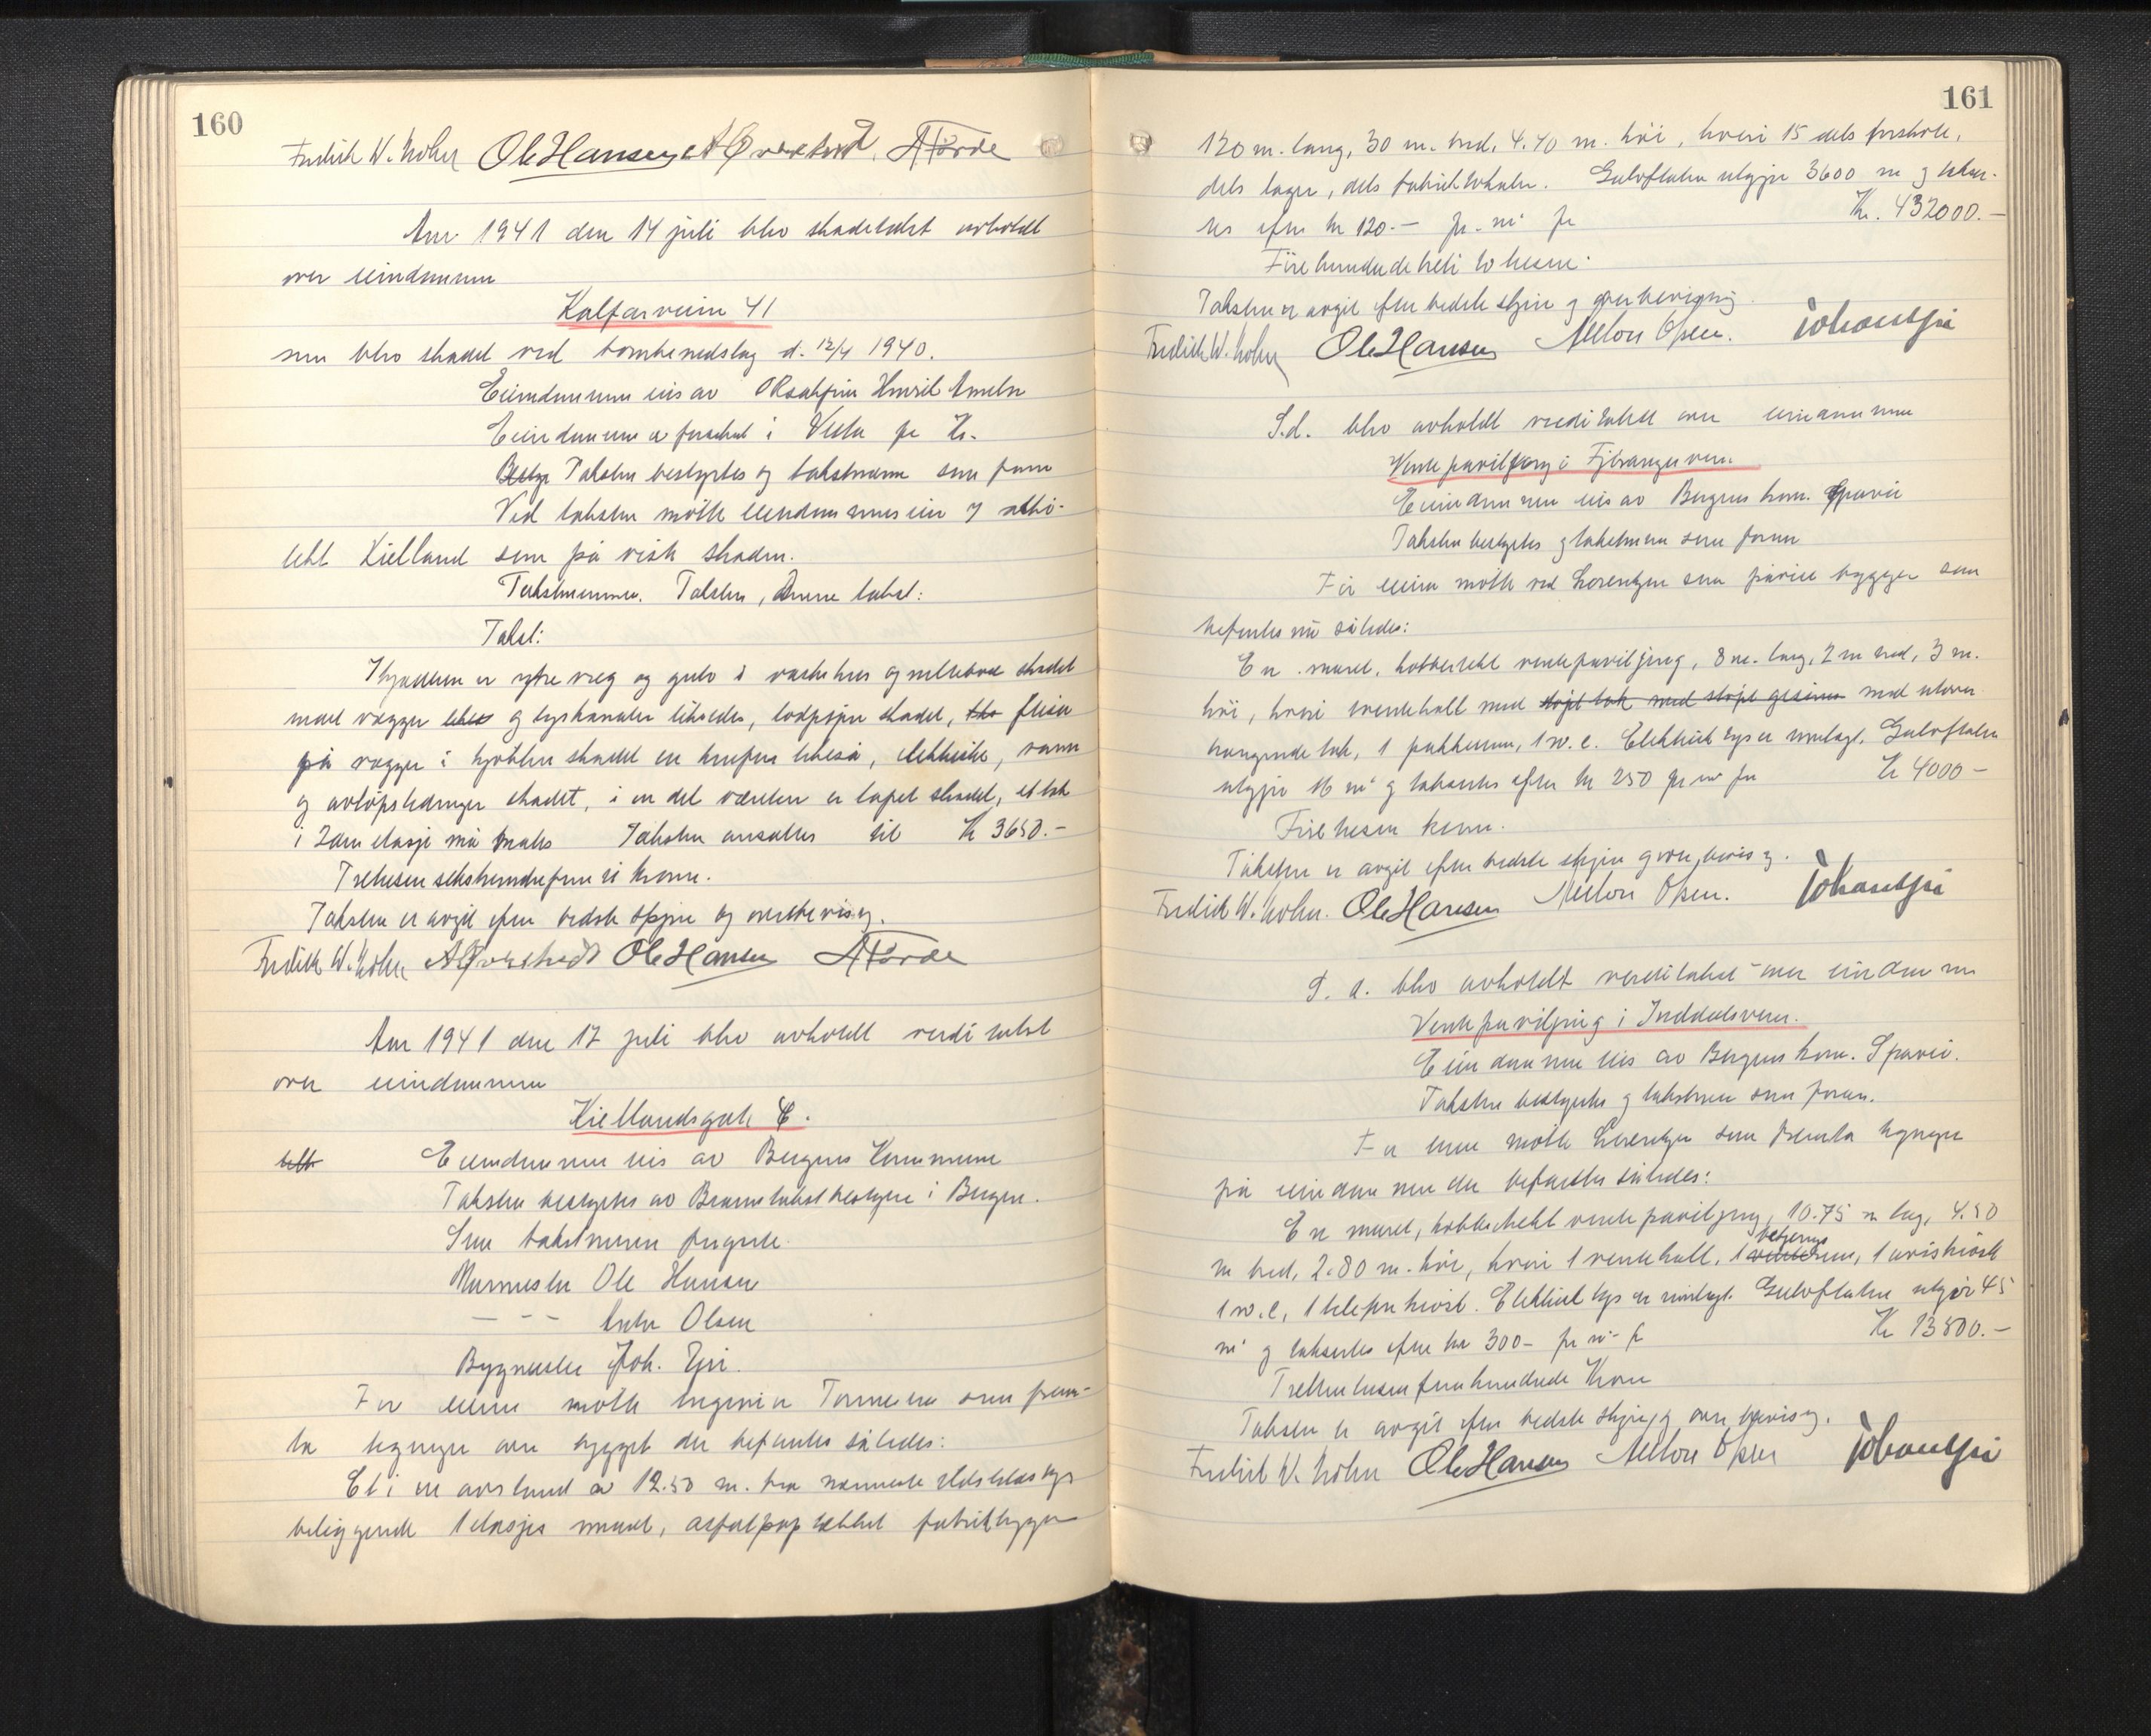 160
Fredrik W. Kohn Ole Hansen A Øvrestvedt A Førde
Aar 1941 den 14 juli blev skadetakst avholdt
over eiendommen
Kalfarveien 41
som blev skadet ved bombenedslag d. 12/4 1940.
Eiendommen eies av Henrik Ameln
Eiendommen er forsikret i Vesta for Kr.
Taksten bestyrtes og takstmenn som foran
Ved taksten møtte eiendommens eier og arki-
tekt Kielland som på viste skaden.
Takstmennene. Taksten, denne takst:
Takst:
I kjelderen er ytre væg og gulv i vaskehus og skadet
muret vægger og lyskanaler likeledes, skadet, fliser
på vægger i kjøkken skadet en likeså, elektriske, vann
og avløpsledninger skadet, i en del værelser er tapet skadet, et tak
i 2den etasje må males Taksten ansættes til Kr 3650.-
Tretusen sekshundreferm ti kroner.
Taksten er avgit efter bedste skjøn og overbevisng.
Fredrik W. Kohn A Øvrestvedt Ole Hansen A Førde
Aar 1941 den 17 juli blev avholdt verditakst
over eiendommen
Kiellandsgate 8.
Eiendommen eies av Bergens Kommune
Taksten bestyrtes av Branntakstbestyrer i Bergen.
Som takstmenn fungerte
Murmester Ole Hansen
— - - Anton Olsen
Bygmester Joh. Gjri.
For eieren møtte ingeniør som frem-
la tegninger over bygget der befantes således:
Et i en avstand av 12.50 m. fra nærmeste
beliggende 1 etasjes muret, asfaltpap tekket fabrikbygg
161
120 m. lang, 30 m. bred, 4.40 m. høi, hvori 15 dels
dels lager, dels fabriklokaler. Gulvflaten utgjør 3600 m² og takse-
res efter kr 120.- pr. m² for Kr. 432000.-
Firehundredetretti to tusen.
Taksten er avgit efter bedste skjøn og overbevisning.
Fredrik W. Kohn Ole Hansen Anton Olsen. Johan Gjri
S.d. blev avholdt verditakst over eiendommen
Ventepaviljong i Fjøsangerveien.
Eiendommen eies av Bergens kom. Sporvei
Taksten bestyrtes og takstmenn som foran
For eieren møtte ved Lorentzen som påviste bygget som
befantes nu således:
En muret, kobbertekt ventepaviljong, 8 m. lang, 2 m bred, 3 m.
høi, hvori ventehall med støpt tak med støpt gesims med utover
hængende tak, 1 pakkerum, 1 w.c. Elektrisk lys er innlagt. Gulvflaten
utgjør 16 m² og takseres efter kr 250 pr m² for Kr 4000 -
Firetusen kroner.
Taksten er avgit efter bedste skjøn og overbevisng.
Fredrik W. Kohn. Ole Hansen Anton Olsen. Johan Gjri
S. d. blev avholdt verditakst over eiendommen
Ventepaviljong i Inndalsveien.
Eiendommen eies av Bergens kom. Sporvei.
Taksten bestyrtes og takstmenn som foran.
For eieren møtte Lorentzen som fremla tegninger
på eiendommen der befantes således:
En muret, kobbertekt ventepaviljong, 10.75 m lang, 4.20
m bred, 2.80 m. høi, hvori 1 ventehall, 1 betjeningsrum, 1 aviskiosk
1 w.c, 1 telefon kiosk. Elektrisk lys er innlagt. Gulvflaten utgjør 45
m² og takseres efter kr 300 - pr m² for Kr 13500.-
Tretten tusen femhundrede Kroner
Taksten er avgit efter bedste skjøn og overbevisng.
Fredrik W. Kohn Ole Hansen Anton Olsen Johan Gjri